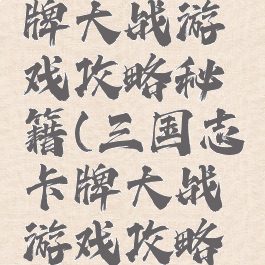 牌大战游
戏攻略秘
籍(三国志
卡牌大战
游戏攻略